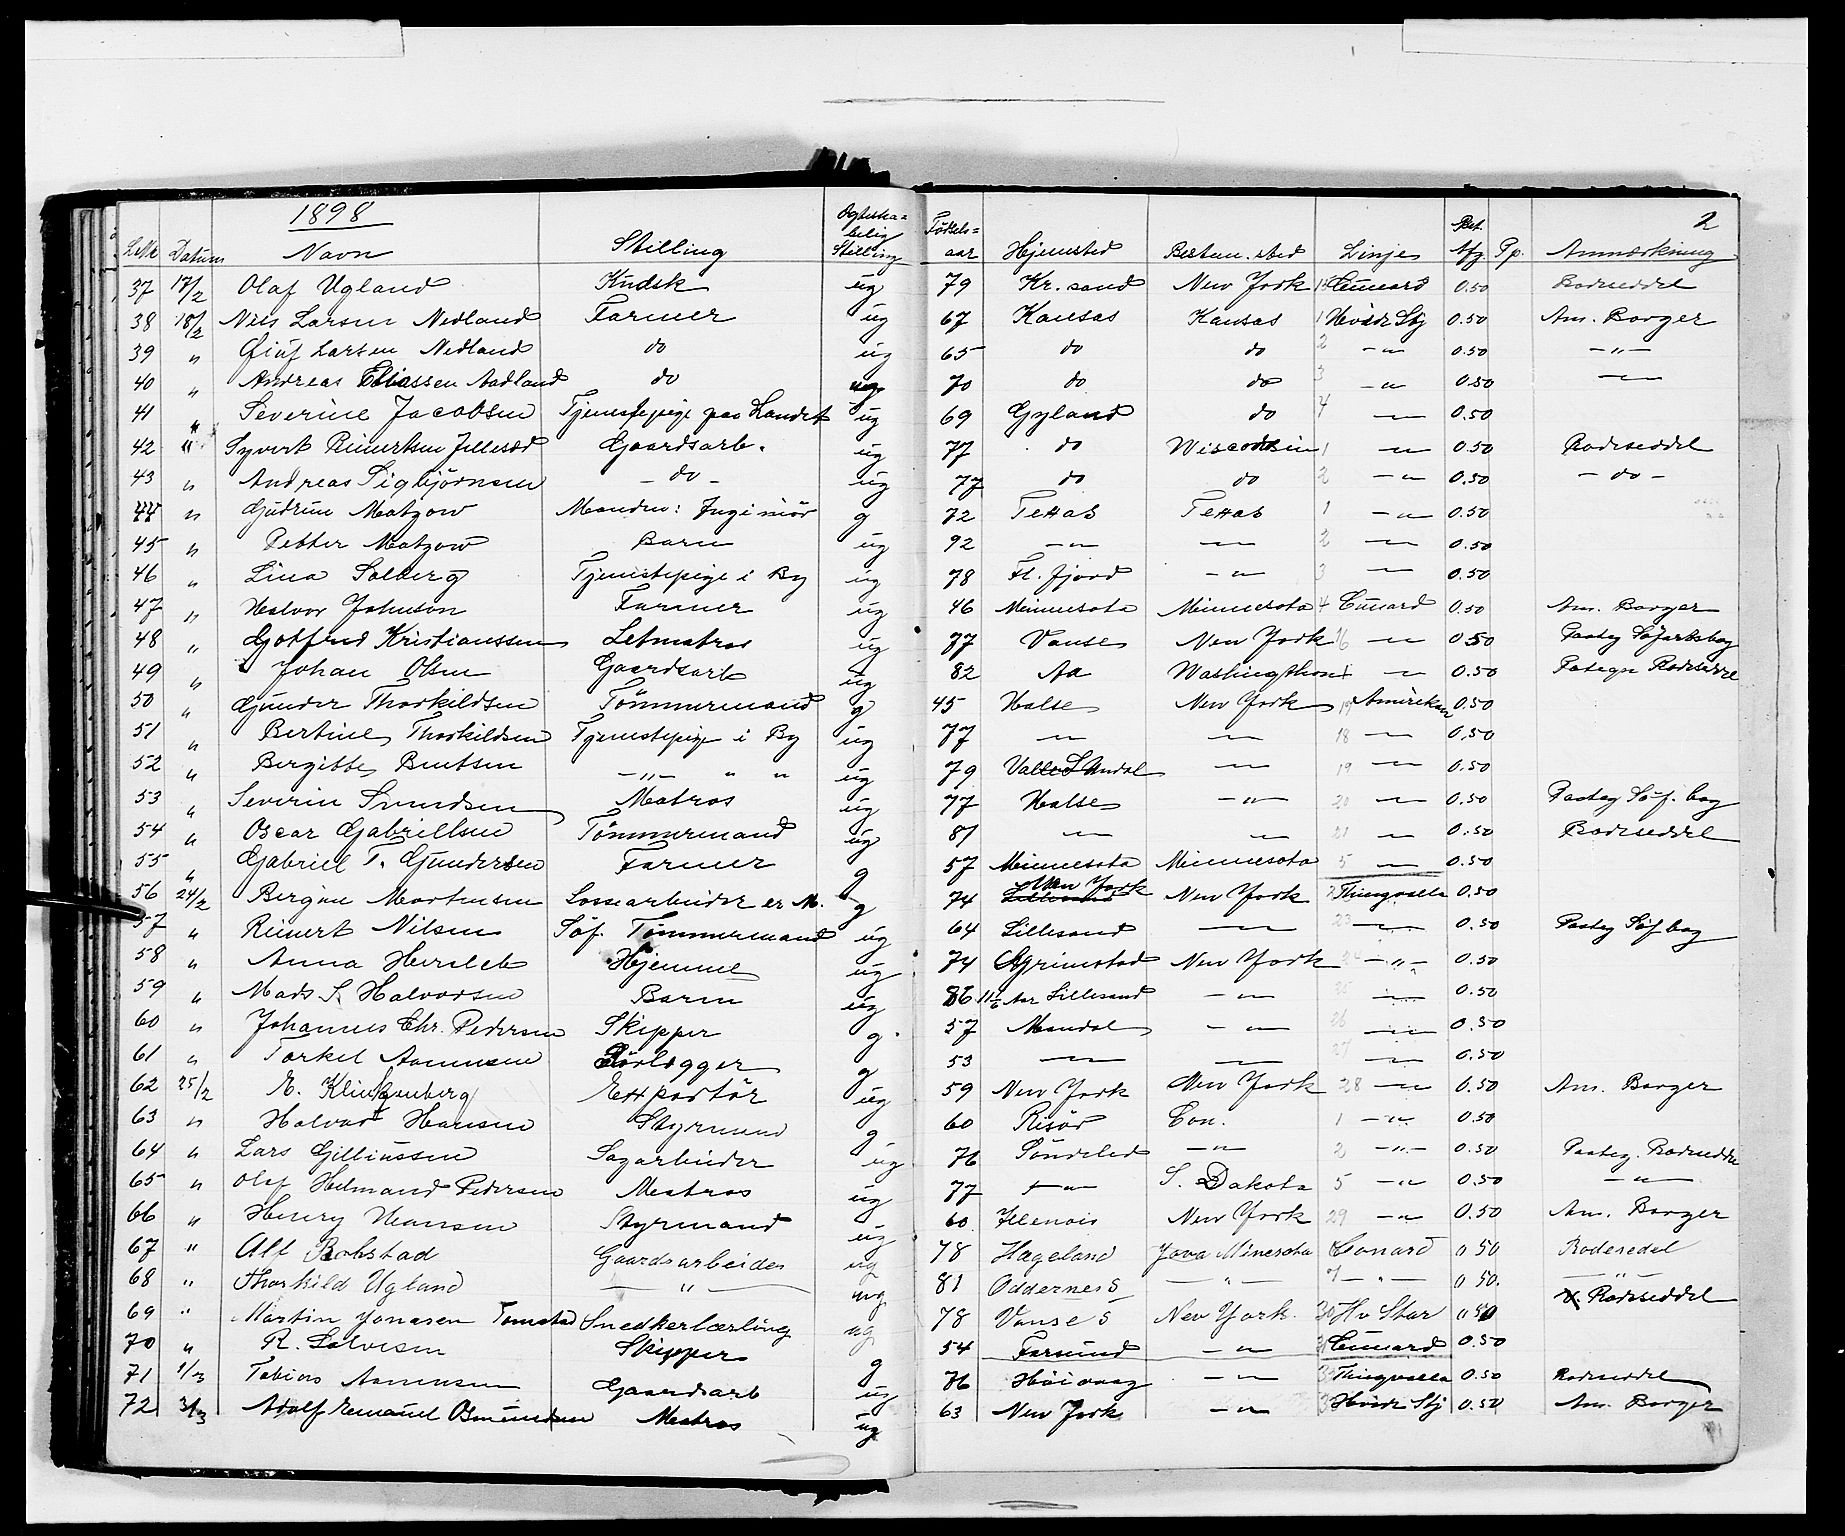 1898
2
LNo Datum Navn Stilling Egteska= belig Stilling Fødsels= aar Hjemsted Bestem. sted Linje Bet. Afg. Pp. Anmærkning
37 17/2 Olaf Ugland Kudsk ug 79 Kr. sand New York Cunard 0.50 Rodeseddel
38 18/2 Nils Larsen Nedland Farmer ug 67 Kansas Kansas 1 Hvide Stj 0.50 Am. Borger
39 " Larsen Nedland do ug 65 do do 2 — " — 0.50 — " —
40 " Andreas Eliassen Aadland do ug 70 do do 3 — " — 0.50 — " —
41 " Severine Jacobsen Tjenestepige paa Landet ug 69 Gyland do 4 — " — 0.50
42 " Syvert Reinertsen Gaardsarb. ug 77 do Wisconsin 1 — " — 0.50 Rodeseddel
43 " Andreas Sigbjörnsen — do — ug 77 do do 2 — " — 0.50 — do —
44 " Gudrun Matzow Manden: Ingeniör g 72 Texas Texas 1 — " — 0.50
45 " Petter Matzow Barn ug 92 — " — — " — 2 — " — 0.50
46 " Lina Solberg Tjenestepige i By ug 78 Fl. fjord — " — 3 — " — 0.50
47 " Halvor Johnson Farmer ug 46 Minnesota Minnesota 4 Cunard 0.50 Am. Borger
48 " Gotfred Kristianssen Letmatros ug 77 Vanse New York 16 — " — 0.50 Paateg Söfartsbog
49 " Johan Olsen Gaardsarb ug 82 Aa Washingthon 1 — " — 0.50 Rodeseddel
50 " Gunder Thorkildsen Tömmermand g 45 Halse New York Amerikan 0.50
51 " Bertine Thorkildsen Tjenestepige i By ug 77 — " — — " — 18 — " — 0.50
52 " Bergitte Bentsen — " — " " ug 79 — " — 19 — " — 0.50
53 " Severin Svendsen Matros ug 77 Halse — " — 20 — " — 0.50 Paateg Söf. bog
54 " Oscar Gabrielsen Tömmermand ug 81 — " — — " — 21 — " — 0.50 Rodeseddel
55 " Gabriel T. Gundersen Farmer g 57 Minnesota Minnesota 5 — " — 0.50
56 24/2 Mortensen g 74 New York New York Thingvalla 0.50
57 " Reinert Nilsen Söf. Tömmermand ug 64 Lillesand — " — 23 — " — 0.50 Paateg Söf bog
58 " Anna Hersleb Hjemme ug 74 Grimstad New York 24 — " — 0.50
59 " Mads S. Halvorsen Barn ug 86 Lillesand — " — 25 — " — 0.50
60 " Johannes Chr. Pedersen Skipper g. 57 Mandal — " — 26 — " — 0.50
61 " Torkel Aanensen g 53 — " — — " — 27 — " — 0.50
62 25/2 Klingenberg Exportör ug 59 New York New York 28 — " — 0.50 Am. Borger
63 " Halvor Hansen Styrmand g 60 Risör Con. 1 — " — 0.50
64 " Lars Gilliussen Sagarbeider ug 76 Söndeled — " — 2 — " — 0.50 Paateg. Rodeseddel
65 " Olaf Helmand Pedersen Matros ug 77 — " — S. Dakota 5 — " — 0.50 — " —
66 " Henry Hansen Styrmand ug 60 Illenois New York 29 — " — 0.50 Am. Borger
67 " Alf Robstad Gaardsarbeider ug 78 Hægeland Jova Minesota Conard 0 50 Rodesedel
68 " Thorkild Ugland — " — ug 81 Oddernes — " — 7 — " — 0 50. — " —
69 " Martin Jonasen Tomstad Snedkerlærling ug 78 Vanse s New York. 30 Hv Star 0 50 Rodeseddel
70 " R. Salvesen Skipper g 54 Farsund — " — Cunard 0.50
71 1/3 Tobias Aanensen Gaardsarb ug 76 Höiovaag — " — Thingvalla 0.50 Rodeseddel
72 3/3 Adolf Emanuel Osmundsen Matros ug 63 New York — " — Hvide Stj 0.50 Am. Borger